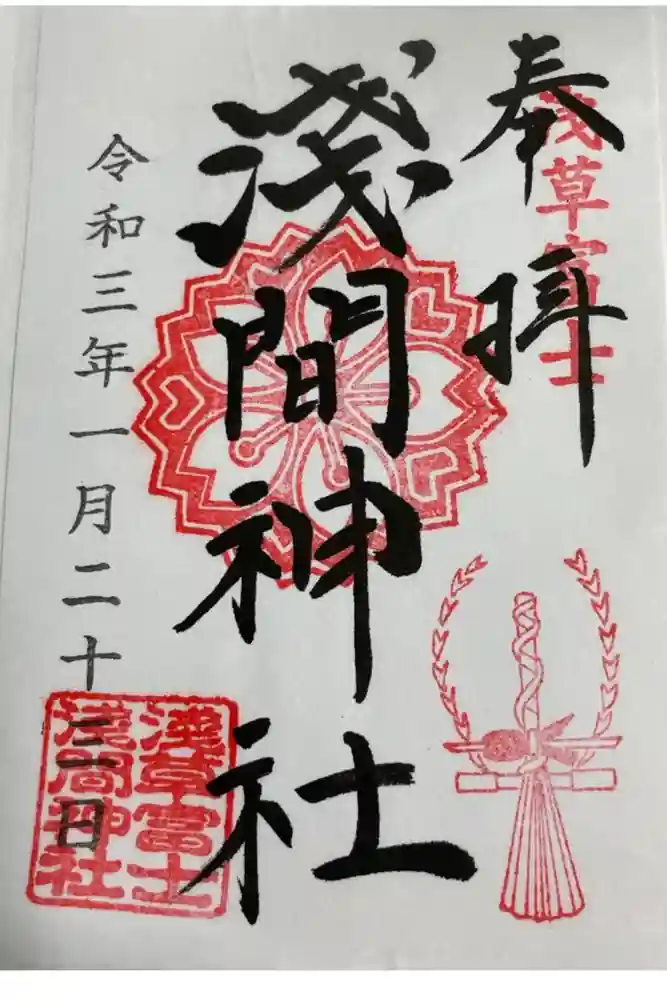 奉拝
浅草富士
淺間神社
令和三年一月二十三日
淺草富士
淺間神社